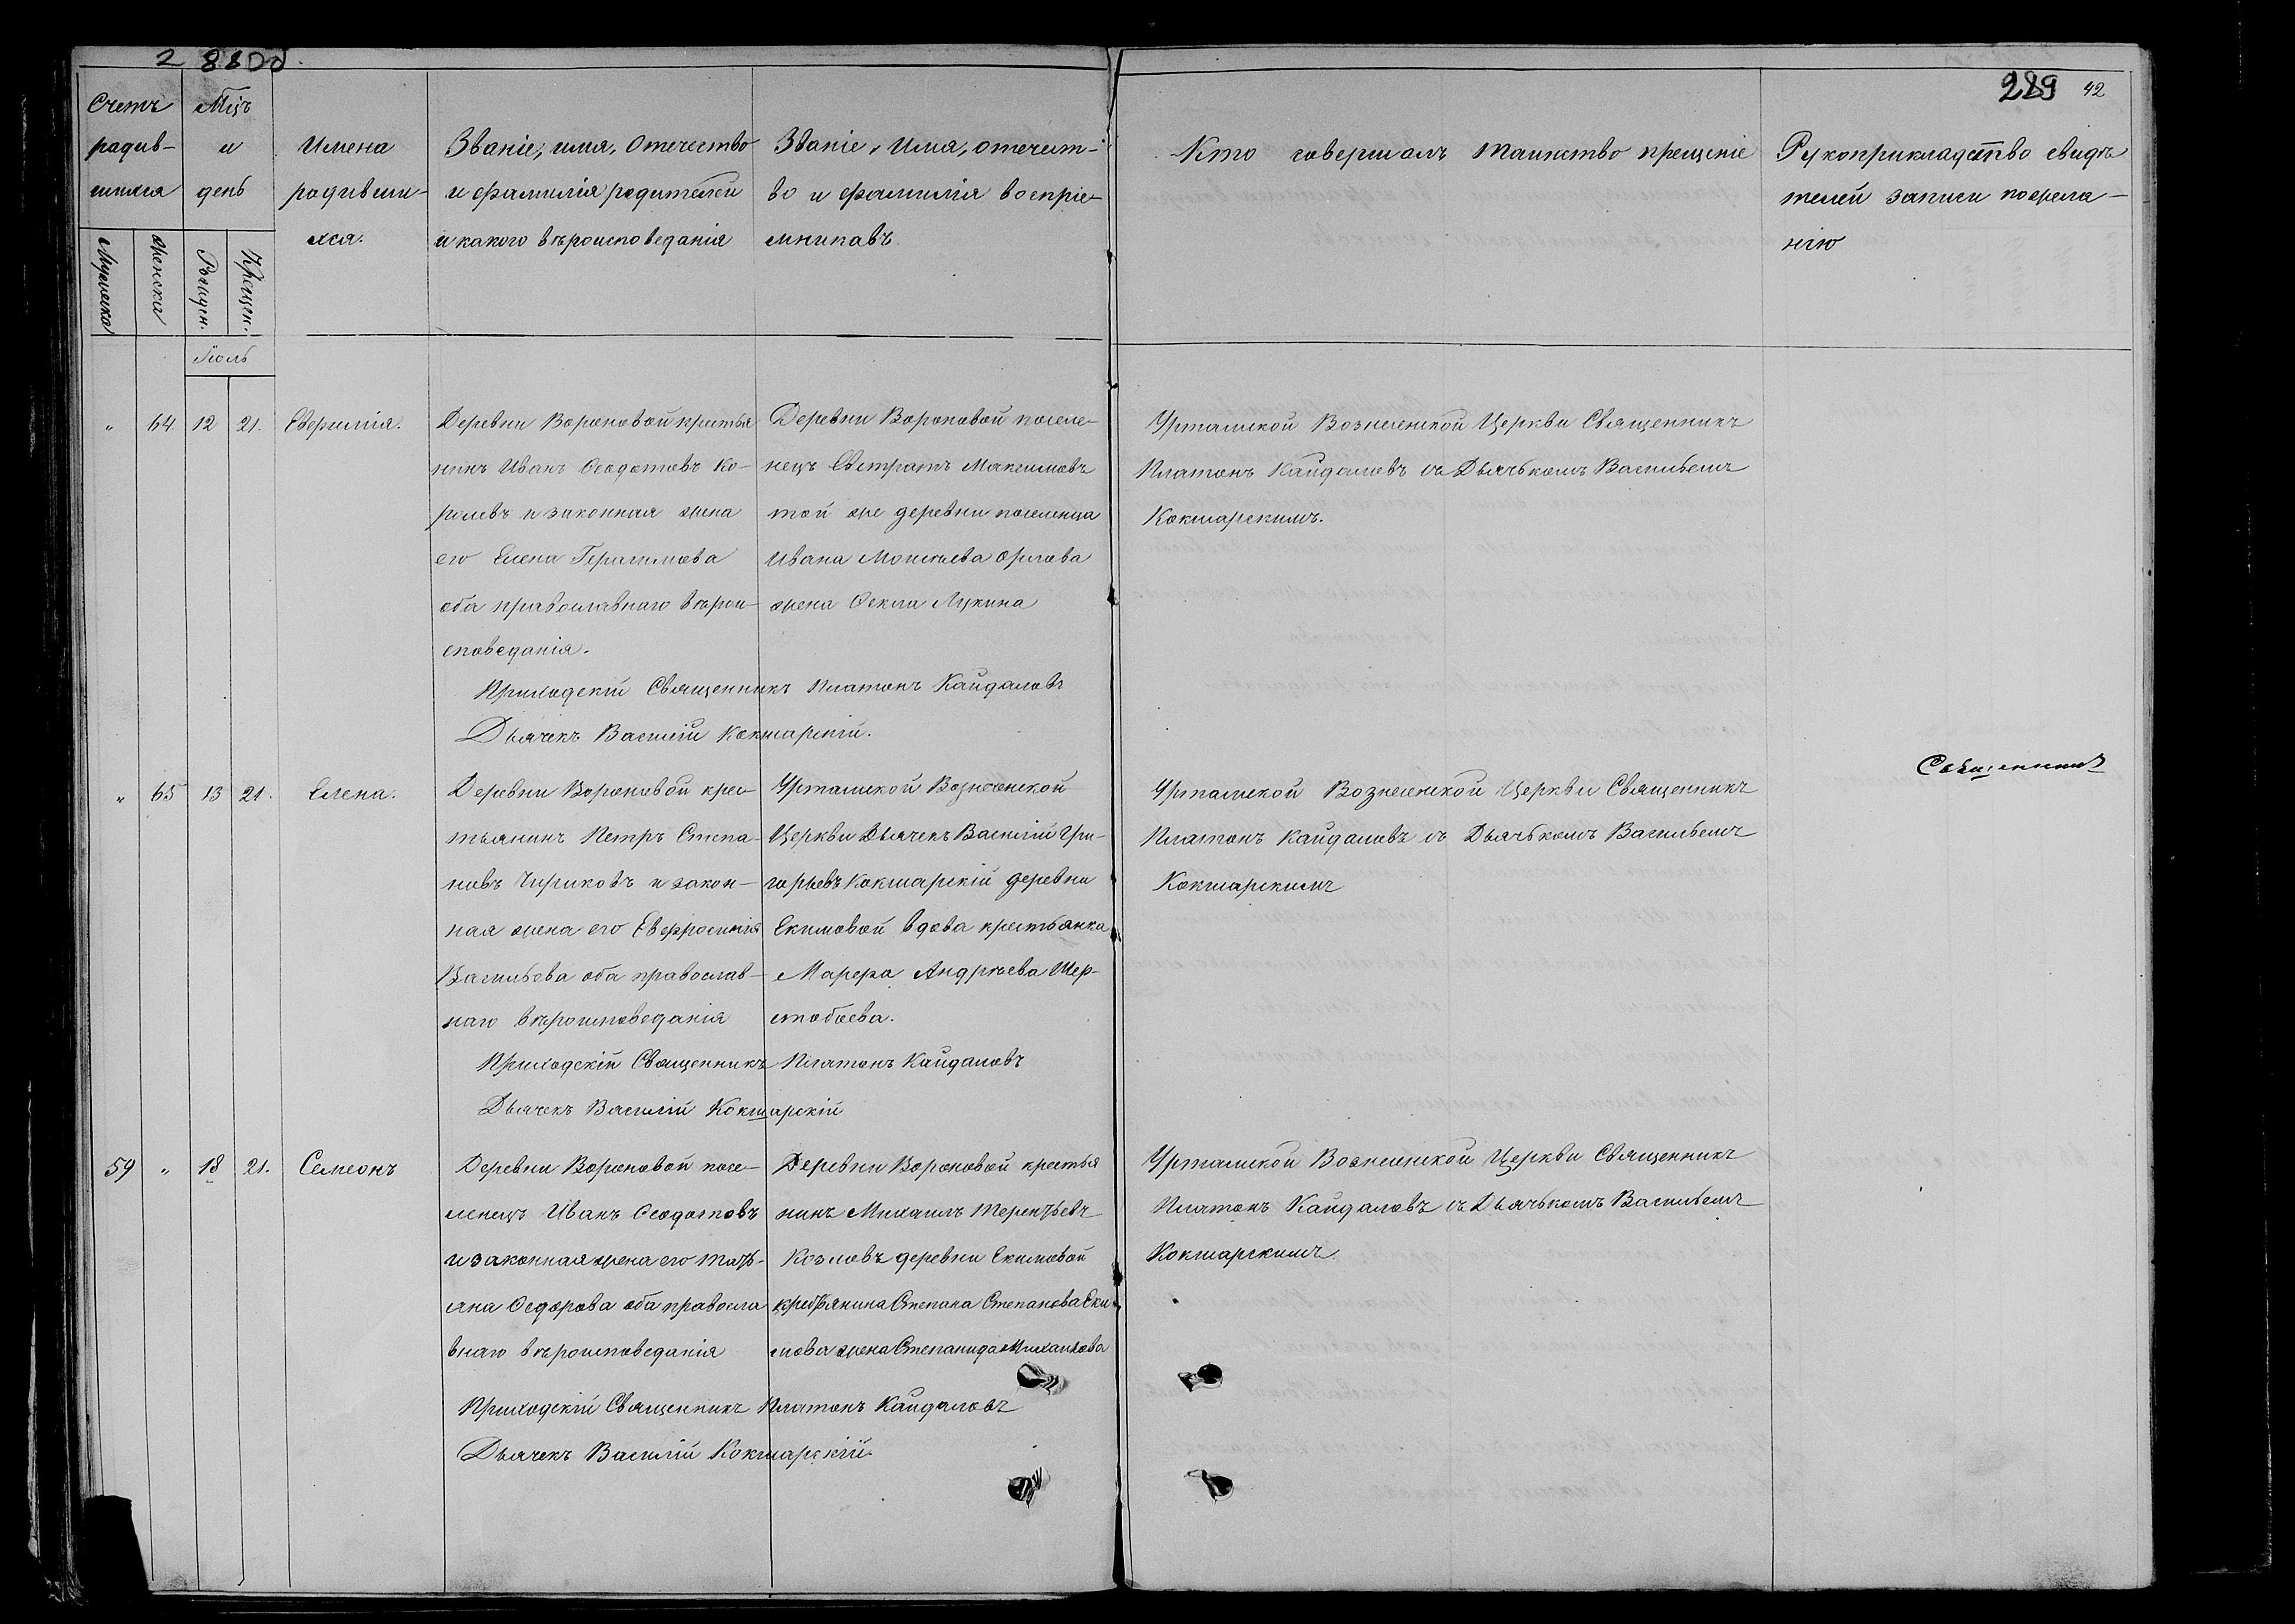 2 88об.
289 42
Счетъ
родив-
шихся
Мужеска
Женска
Мцъ
и
день
Рожден.
Крещен.
Имена
родивши-
хся.
Званіе, имя, Отчество
и фамилія родителей
и какого вѣроисповеданія
Званіе, Имя, отечест-
во и фамилія воспріе-
мниковъ
Кто совершалъ Таинство крещеніе
Рукоприкладство свидѣ
телей записи пожела-
нію
Іюль
" 64 12 21. Евфимія.
Деревни Вороновой крестья
нинъ Иванъ Ѳеодотовъ Ко-
ролевъ и законная жена
его Елена Герасимова
оба православнаго вѣрои-
споведанія.
Деревни Вороновой поселе-
нецъ Евстратъ Максимовъ
той же деревни поселенца
Ивана Моисѣева Орлова
жена Ѳекла Лукина
Уртамской Вознесенской Церкви Священникъ
Платонъ Кайдаловъ съ Дьячькомъ Васильемъ
Кокшарскимъ.
Приходскій Священникъ Платонъ Кайдаловъ
Дьячекъ Василій Кокшарскій.
Священникъ
" 65 13 21. Елена.
Деревни Вороновой крес-
тьянинъ Петръ Степа-
новъ Чириковъ и закон-
ная жена его Евфросинія
Васильева оба православ-
наго вѣроисповеданія
Уртамской Вознесенской
Церкви Дьячекъ Василій Гри-
горьевъ Кокшарскій деревни
Екимовой вдова крестьянка
Марфа Андрѣева Шер-
стобоева.
Уртамской Вознесенской Церкви Священникъ
Платонъ Кайдаловъ съ Дьячькомъ Васильемъ
Кокшарскимъ
Приходскій Священникъ Платонъ Кайдаловъ
Дьячекъ Василій Кокшарскій
59 " 18 21. Семеонъ
Деревни Вороновой посе-
ленецъ Иванъ Ѳеодотовъ
и законная жена его Тать-
яна Ѳедорова оба правосла
внаго вѣроисповеданія
Деревни Вороновой крестья
нинъ Михаилъ Терентьевъ
Козловъ деревни Екимовой
крестьянина Степана Степанова Еки-
мова жена Степанида Михайлова
Уртамской Вознесенской Церкви Священникъ
Платонъ Кайдаловъ съ Дьячькомъ Васильемъ
Кокшарскимъ.
Приходскій Священникъ Платонъ Кайдаловъ
Дьячекъ Василій Кокшарскій.